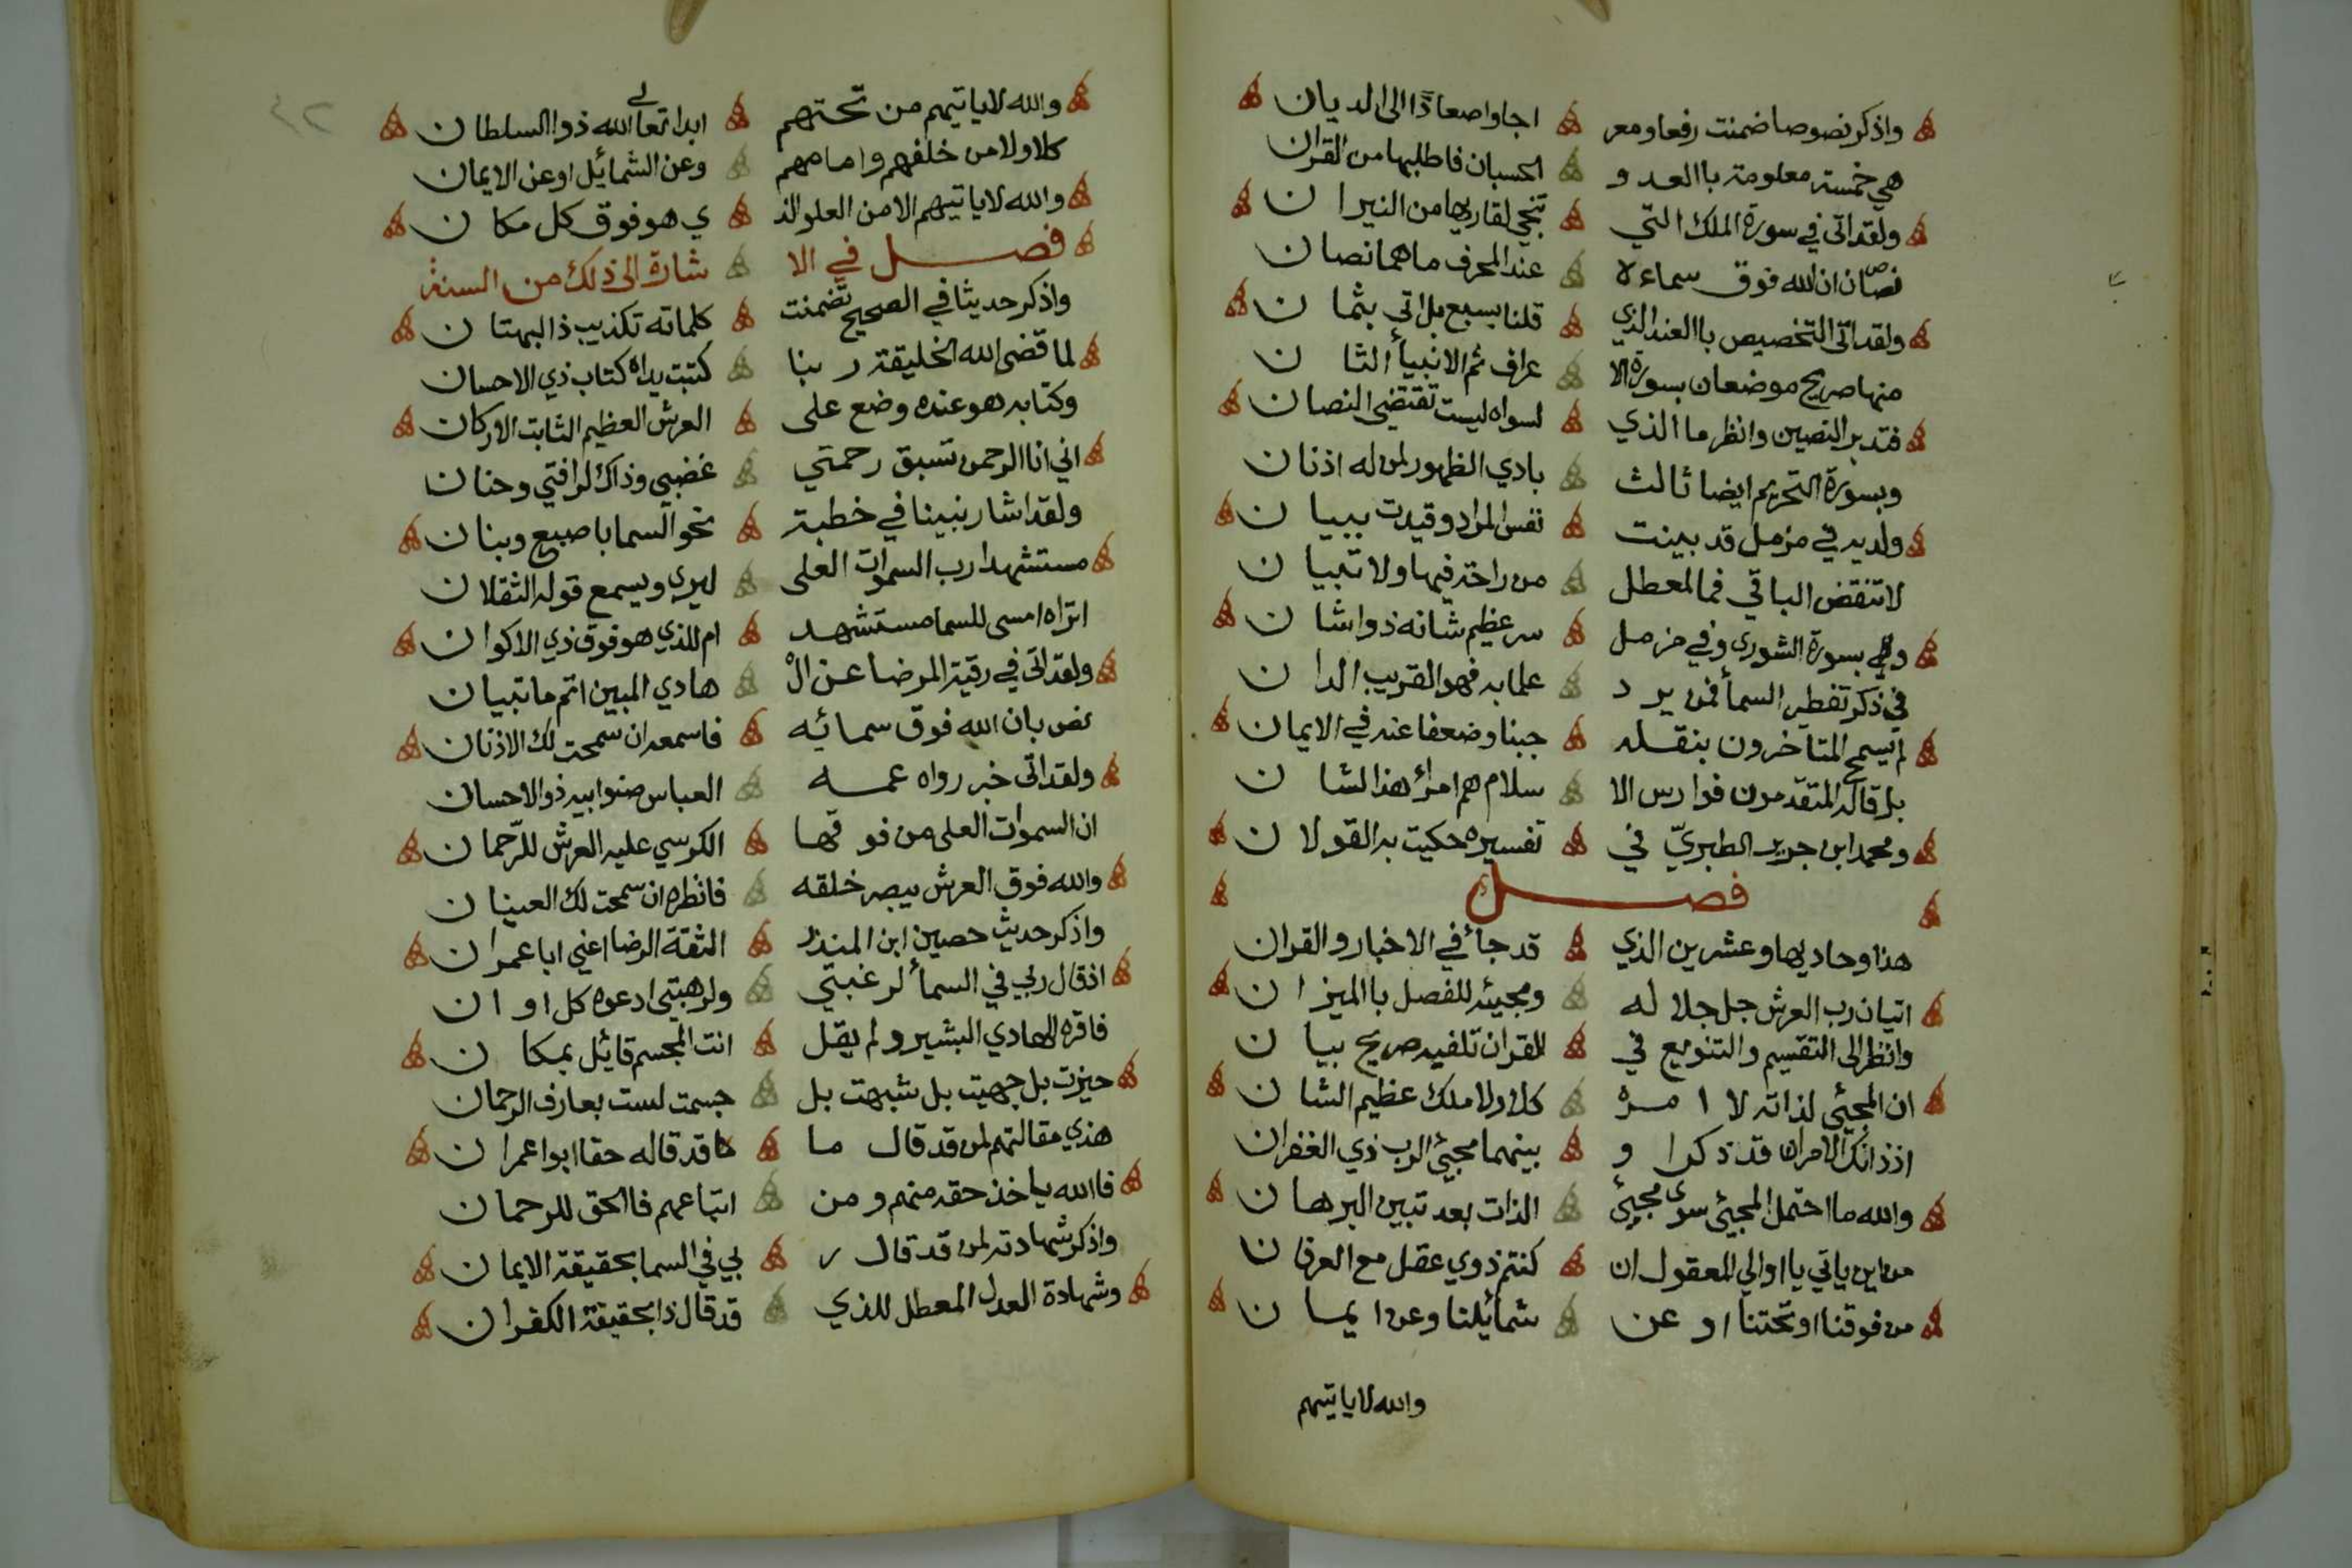 واذكر نصوصا ضمنت رفعا ومعر اجا واصعادًا الى الديان
هي خمسة معلومة باالعد و الحسبان فاطلبها من القران
ولقد اتى في سورة الملك التي تنجي لقاريها من النيران
نصّان ان الله فوق سماءه عند المحرف ما هما نصان
ولقد اتى التخصيص باالعند الذي قلنا بسبع بل اتى بثمان
منها صريح موضعان بسورة الا عراف ثم الانبيأ الثان
فتدبر النصين وانظر ما الذي لسواه ليست تقتضي النصان
وبسورة التحريم ايضا ثالث بادي الظهور لمن له اذنان
ولديه في مزمل قد بينت نفس المراد وقيدت ببيان
لا تنقض الباقي فما لمعطل من راحة فيها ولا تبيان
ولي بسورة الشورى وفي مزمل سر عظيم شانه ذوا شان
في ذكر تفطير السمأ فمن يرد علما به فهو القريب الدان
لم يسمح المتأخرون بنقله جبنا وضعفا عنه في الايمان
بل قاله المتقدمون فوارس الا سلام هم امرأ هذا الشان
ومحمد ابن جرير الطبريّ في تفسيره حكيت به القولان
فصل
هذا وحاديها وعشرين الذي قد جأ في الاخبار والقران
اتيان رب العرش جل جلاله ومجيئه للفصل باالميزان
وانظر الى التقسيم والتنويع في للقران تلفيه صريح بيان
ان المجيئ لذاته لا امره كلا ولا ملك عظيم الشان
اذ ذانك الامران قد ذكرا و بينهما مجيئ الرب ذي الغفران
والله ما احتمل المجيئ سوى مجيئ الذات بعد تبين البرهان
من اين ياتي يا اوالي المعقول ان كنتم ذوي عقل مع العرفان
من فوقنا او تحتنا او عن شمائلنا وعن ايمان
والله لا ياتيهم
والله لا ياتيهم من تحتهم ابدا تعالى الله ذوا السلطان
كلا ولا من خلفهم وامامهم وعن الشمائل او عن الايمان
والله لا ياتيهم الا من العلو الذ ي هو فوق كل مكان
فصل في الا شارة الى ذلك من السنة
واذكر حديثا في الصحيح تضمنت كلماته تكذيب ذا البهتان
لما قضى الله الخليقة ربنا كتبت يداه كتاب ذي الاحسان
وكتابه هو عنده وضع على العرش العظيم الثابت الاركان
اني انا الرحمن تسبق رحمتي غضبي وذاك لرافتي وحنان
ولقد اشار نبينا في خطبة نحو السما باصبع وبنان
مستشهدا رب السموات العلى ليرى ويسمع قوله الثقلان
اتراه امسى للسما مستشهد ام للذي هو فوق ذي الاكوان
ولقد اتى في رقية المرضا عن ال هادي المبين اتم ما تبيان
نص بان الله فوق سمائه فاسمعه ان سمحت لك الاذنان
ولقد اتى خبر رواه عمه العباس صنوا بيه ذو الاحسان
ان السموات العلى من فوقها الكرسي عليه العرش للرّحمان
والله فوق العرش يبصر خلقه فانظره ان سمحت لك العينان
واذكر حديث حصين ابن المنذر الثقة الرضا اعني ابا عمران
اذ قال ربي في السمأ لرغبتي ولرهبتي ادعوه كل اوان
فاقره الهادي البشير ولم يقل انت المجسم قائل بمكان
حيزت بل جهيت بل شبهت بل جسمت لست بعارف الرحمان
هذي مقالتهم لمن قد قال ما قد قاله حقا ابوا عمران
فاالله ياخذ حقه منهم ومن اتباعهم فاالحق للرحمان
واذكر شهادته لمن قد قال ر بي في السما بحقيقة الايمان
وشهادة العدل المعطل للذي قد قال ذا بحقيقة الكفران